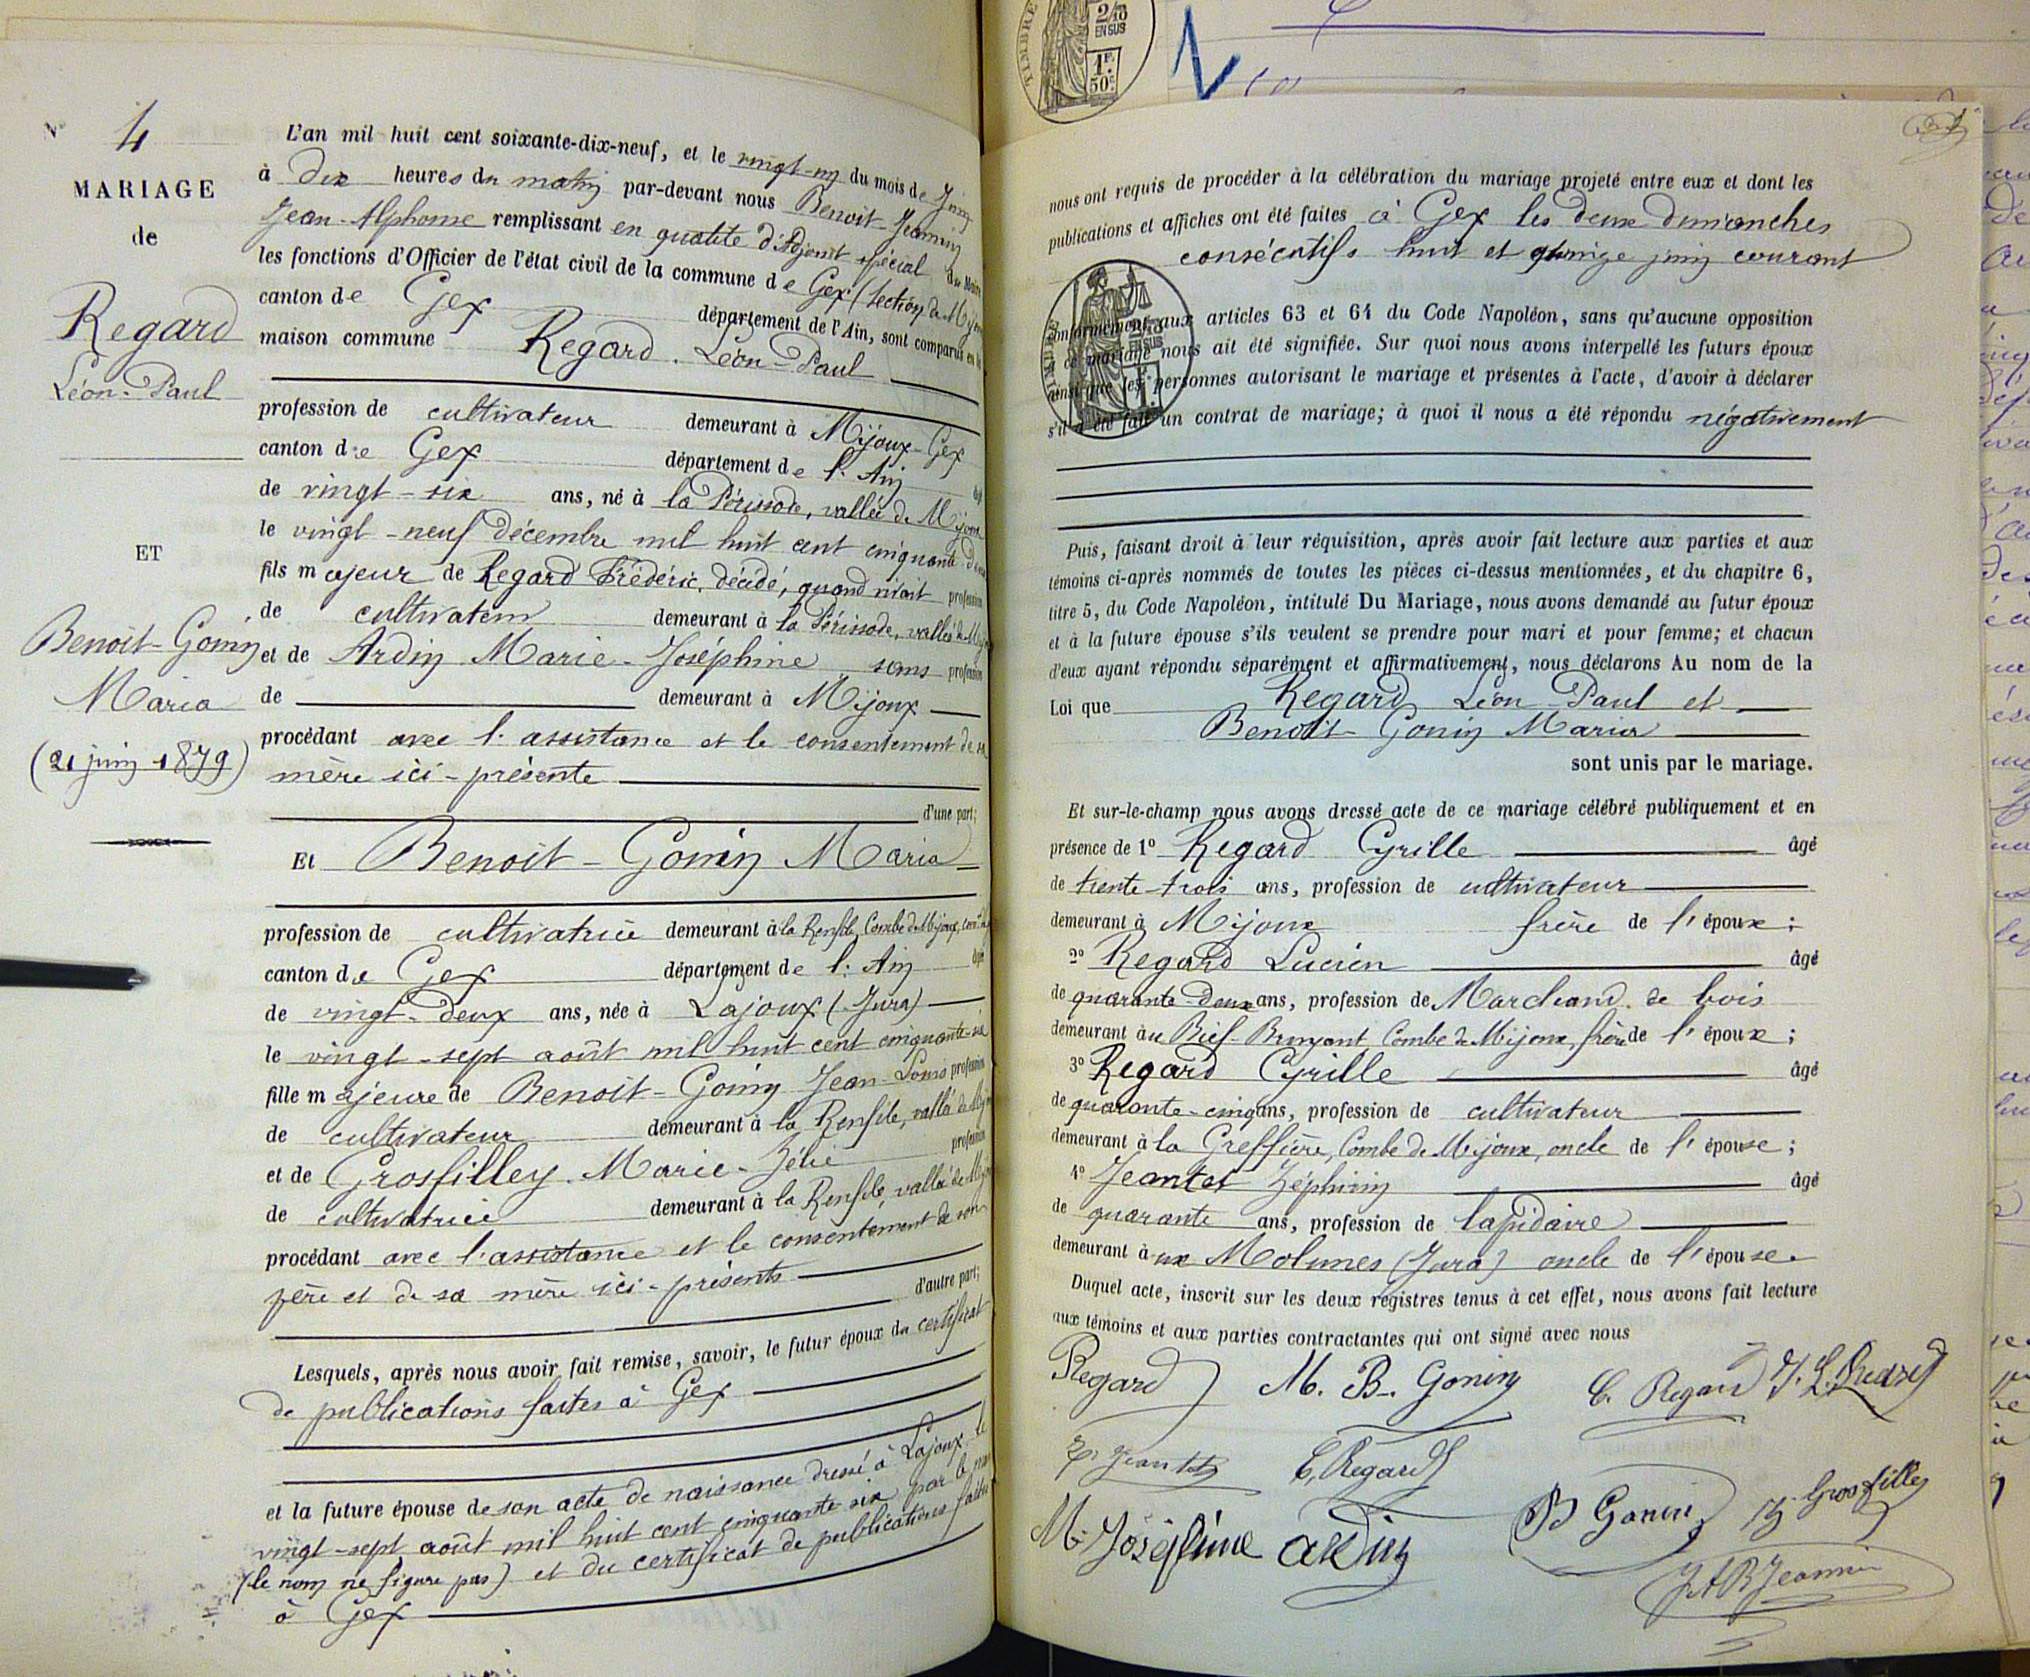 N° 4
MARIAGE
de
Regard
Léon-Paul
ET
Benoit-Gonin
Maria
(21 juin 1879)
L'an mil huit cent soixante-dix-neuf, et le vingt-un du mois de Juin
à dix heures du matin par-devant nous Benoit-Jeannin
Jean-Alphonse remplissant en qualité d'Adjoint spécial du Maire
les fonctions d'Officier de l'état civil de la commune de Gex (Section de Mijoux
canton de Gex département de l'Ain, sont comparus en la
maison commune Regard Léon-Paul
profession de cultivateur demeurant à Mijoux-Gex
canton de Gex département de l'Ain âgé
de vingt-six ans, né à la Périssode, vallée de Mijoux
le vingt-neuf décembre mil huit cent cinquante-deux
fils majeur de Regard Frédéric, décédé, quand vivait profession
de cultivateur demeurant à la Périssode, vallée de Mijoux
et de Ardin Marie-Joséphine sans profession
de demeurant à Mijoux
procédant avec l'assistance et le consentement de sa
mère ici-présente
d'une part;
Et Benoit-Gonin Maria
profession de cultivatrice demeurant à la Renfile, Combe de Mijoux,
canton de Gex département de l'Ain âgée
de vingt-deux ans, née à Lajoux (Jura)
le vingt-sept août mil huit cent cinquante-six
fille majeure de Benoit-Gonin Jean-Louis profession
de cultivateur demeurant à la Renfile, vallée de Mijoux
et de Grosfilley Marie-Zélie profession
de cultivatrice demeurant à la Renfile, vallée de Mijoux
procédant avec l'assistance et le consentement de son
père et de sa mère ici-présents
d'autre part;
Lesquels, après nous avoir fait remise, savoir, le futur époux du certificat
de publications faites à Gex
et la future épouse de son acte de naissance dressé à Lajoux le
vingt-sept août mil huit cent cinquante-six par le maire
(le nom ne figure pas) et du certificat de publications faites
à Gex
TIMBRE
2/10
EN SUS
1F.
50c.
nous ont requis de procéder à la célébration du mariage projeté entre eux et dont les
publications et affiches ont été faites à Gex les deux dimanches
consécutifs huit et quinze juin courant
conformément aux articles 63 et 64 du Code Napoléon, sans qu'aucune opposition
à ce mariage nous ait été signifiée. Sur quoi nous avons interpellé les futurs époux
ainsi que les personnes autorisant le mariage et présentes à l'acte, d'avoir à déclarer
s'il a été fait un contrat de mariage; à quoi il nous a été répondu négativement
Puis, faisant droit à leur réquisition, après avoir fait lecture aux parties et aux
témoins ci-après nommés de toutes les pièces ci-dessus mentionnées, et du chapitre 6,
titre 5, du Code Napoléon, intitulé Du Mariage, nous avons demandé au futur époux
et à la future épouse s'ils veulent se prendre pour mari et pour femme; et chacun
d'eux ayant répondu séparément et affirmativement, nous déclarons Au nom de la
Loi que Regard Léon-Paul et
Benoit-Gonin Maria
sont unis par le mariage.
Et sur-le-champ nous avons dressé acte de ce mariage célébré publiquement et en
présence de 1° Regard Cyrille âgé
de trente-trois ans, profession de cultivateur
demeurant à Mijoux frère de l'époux;
2° Regard Lucien âgé
de quarante-deux ans, profession de Marchand de bois
demeurant au Bief-Bruyant Combe de Mijoux, frère de l'époux;
3° Regard Cyrille âgé
de quarante-cinq ans, profession de cultivateur
demeurant à la Greffière, Combe de Mijoux, oncle de l'épouse;
4° Jeantet Zéphirin âgé
de quarante ans, profession de lapidaire
demeurant aux Molunes (Jura) oncle de l'épouse.
Duquel acte, inscrit sur les deux registres tenus à cet effet, nous avons fait lecture
aux témoins et aux parties contractantes qui ont signé avec nous
Regard M. B. Gonin C. Regard
Z. Jeantet C. Regard
M. Joséphine Ardin B Gonin Z. Grosfilley
J A B Jeannin